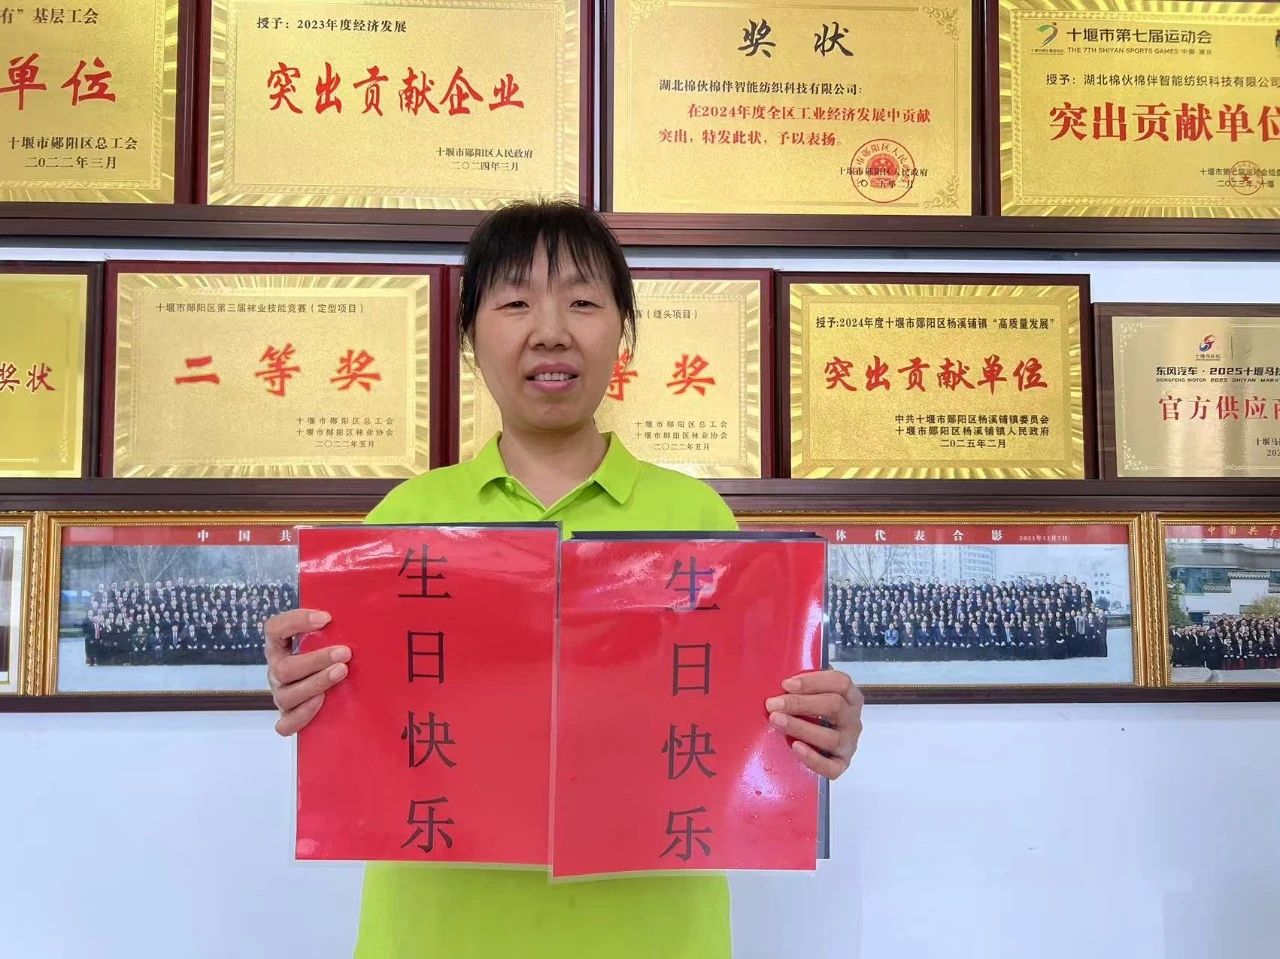 有”基层工会
单位
十堰市郧阳区总工会
二〇二二年三月
授予：2023年度经济发展
突出贡献企业
十堰市郧阳区人民政府
二〇二四年三月
奖 状
湖北棉伙棉伴智能纺织科技有限公司：
在2024年度全区工业经济发展中贡献
突出，特发此状，予以表扬。
十堰市郧阳区人民政府
二〇二五年二月
十堰市第七届运动会
THE 7TH SHIYAN SPORTS GAMES 中国·湖北
授予：湖北棉伙棉伴智能纺织科技有限公司
突出贡献单位
奖状
十堰市郧阳区第三届袜业技能竞赛（定型项目）
二 等 奖
十堰市郧阳区总工会
十堰市郧阳区袜业协会
二〇二二年五月
赛（缝头项目）
等 奖
十堰市郧阳区总工会
十堰市郧阳区袜业协会
二〇二二年五月
授予:2024年度十堰市郧阳区杨溪铺镇“高质量发展”
突出贡献单位
中共十堰市郧阳区杨溪铺镇委员会
十堰市郧阳区杨溪铺镇人民政府
二〇二五年二月
东风汽车·2025十堰马拉
DONGFENG MOTOR 2025 SHIYAN MAR
官方供应商
中国共
体代表合影 2021年12月7日
中国共产
生日快乐
生日快乐